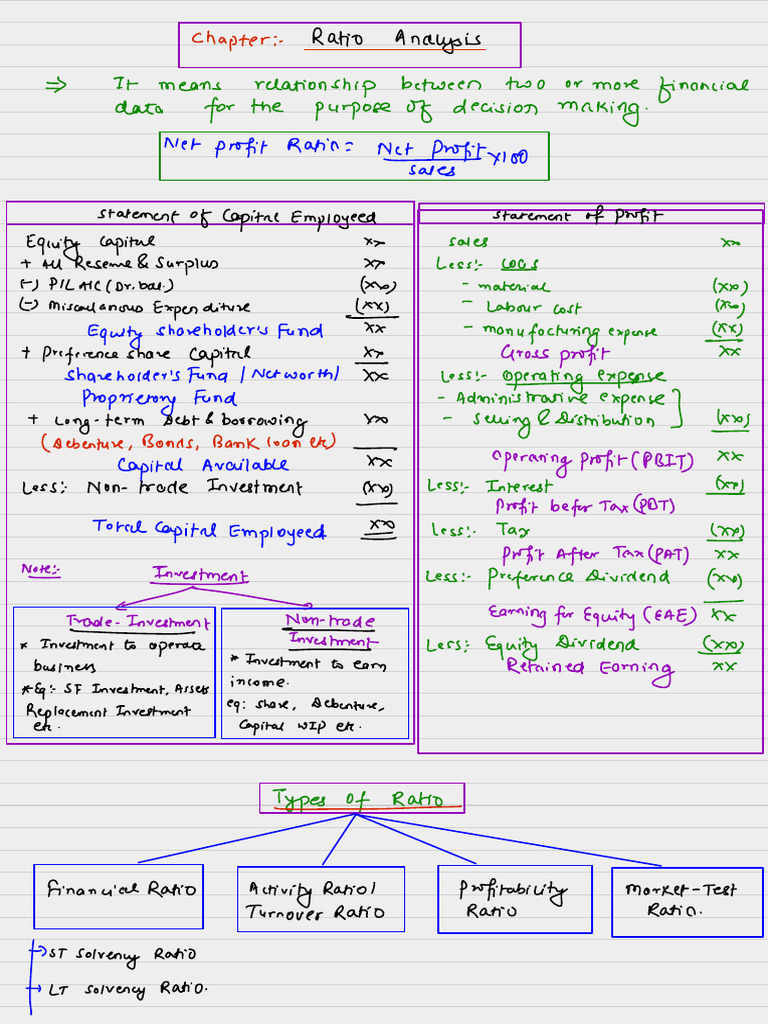 Chapter:- Ratio Analysis
⇒ It means relationship between two or more financial
data for the purpose of decision making.
Net profit Ratio = Net Profit / sales ×100
Statement of Capital Employeed
Equity Capital xx
+ All Reserve & Surplus xx
(-) P/L A/C (Dr. bal.) (xx)
(-) Miscellanous Expenditure (xx)
Equity shareholder's Fund xx
+ Preference share Capital xx
Shareholder's Fund / Networth / xx
Proprietory Fund
+ Long-term Debt & borrowing xx
(Debenture, Bonds, Bank loan etc)
Capital Available xx
Less:- Non-trade Investment (xx)
Total Capital Employeed xx
Note:-
Investment
Trade-Investment
* Investment to operate
business
* Eg:- ST Investment, Assets
Replacement Investment
etc.
Non-trade
Investment
* Investment to earn
income.
eg: share, Debenture,
Capital WIP etc.
Statement of Profit
sales xx
Less:- COGS
- material (xx)
- Labour cost (xx)
- manufacturing expense (xx)
Gross profit xx
Less:- Operating expense
- Administrative expense
- Selling & Distribution (xx)
Operating Profit (PBIT) xx
Less:- Interest (xx)
Profit befor Tax (PBT)
Less:- Tax (xx)
Profit After Tax (PAT) xx
Less:- Preference Dividend (xx)
Earning for Equity (EAE) xx
Less:- Equity Dividend (xx)
Retained Earning xx
Types of Ratio
Financial Ratio
Activity Ratio /
Turnover Ratio
Profitability
Ratio
Market-Test
Ratio.
→ ST Solvency Ratio
→ LT Solvency Ratio.